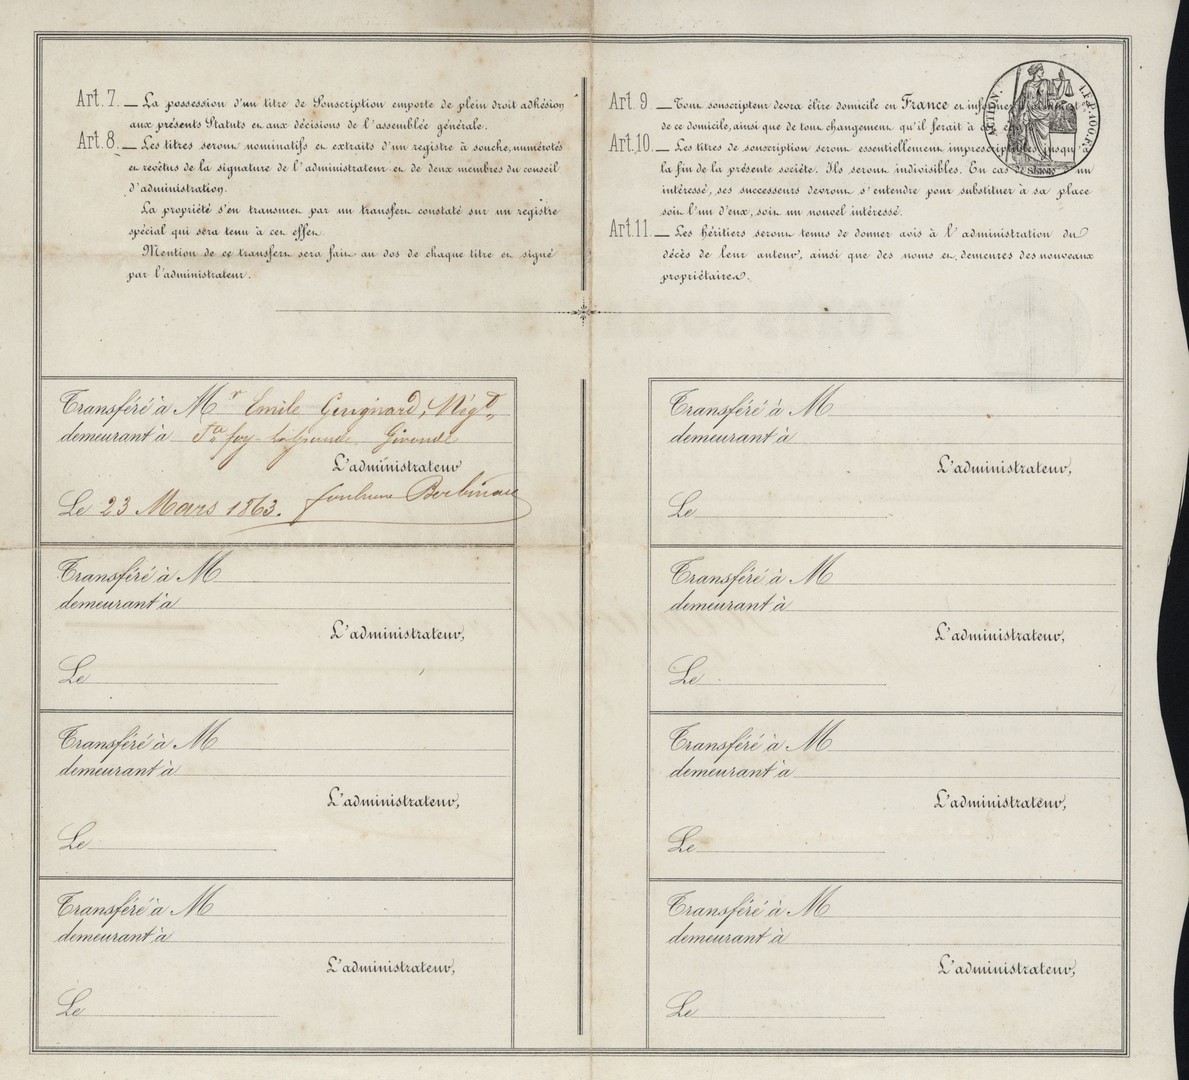 Art. 7. — La possession d'un titre de Souscription emporte de plein droit adhésion
aux présents Statuts et aux décisions de l'assemblée générale.
Art. 8. — Les titres seront nominatifs et extraits d'un registre à souche, numérotés
et revêtus de la signature de l'administrateur et de deux membres du conseil
d'administration.
La propriété s'en transmet par un transfert constaté sur un registre
spécial qui sera tenu à cet effet.
Mention de ce transfert sera fait au dos de chaque titre et signé
par l'administrateur.
Art. 9 — Tout souscripteur devra élire domicile en France et
de ce domicile, ainsi que de tout changement qu'il ferait à
Art. 10. — Les titres de souscription seront essentiellement imprescriptibles jusqu'
la fin de la présente société. Ils seront indivisibles. En cas de un
intéressé, ses successeurs devront s'entendre pour substituer à sa place
soit l'un d'eux, soit un nouvel intéressé.
Art. 11. — Les héritiers seront tenus de donner avis à l'administration du
décès de leur auteur, ainsi que des noms et demeures des nouveaux
propriétaires.
Transféré à Mr Emile Négt
demeurant à Ste foy-la Grande Gironde
L'administrateur
Le 23 Mars 1863.
Transféré à M
demeurant à
L'administrateur,
Le
Transféré à M
demeurant à
L'administrateur,
Le
Transféré à M
demeurant à
L'administrateur,
Le
Transféré à M
demeurant à
L'administrateur,
Le
Transféré à M
demeurant à
L'administrateur,
Le
Transféré à M
demeurant à
L'administrateur,
Le
Transféré à M
demeurant à
L'administrateur,
Le